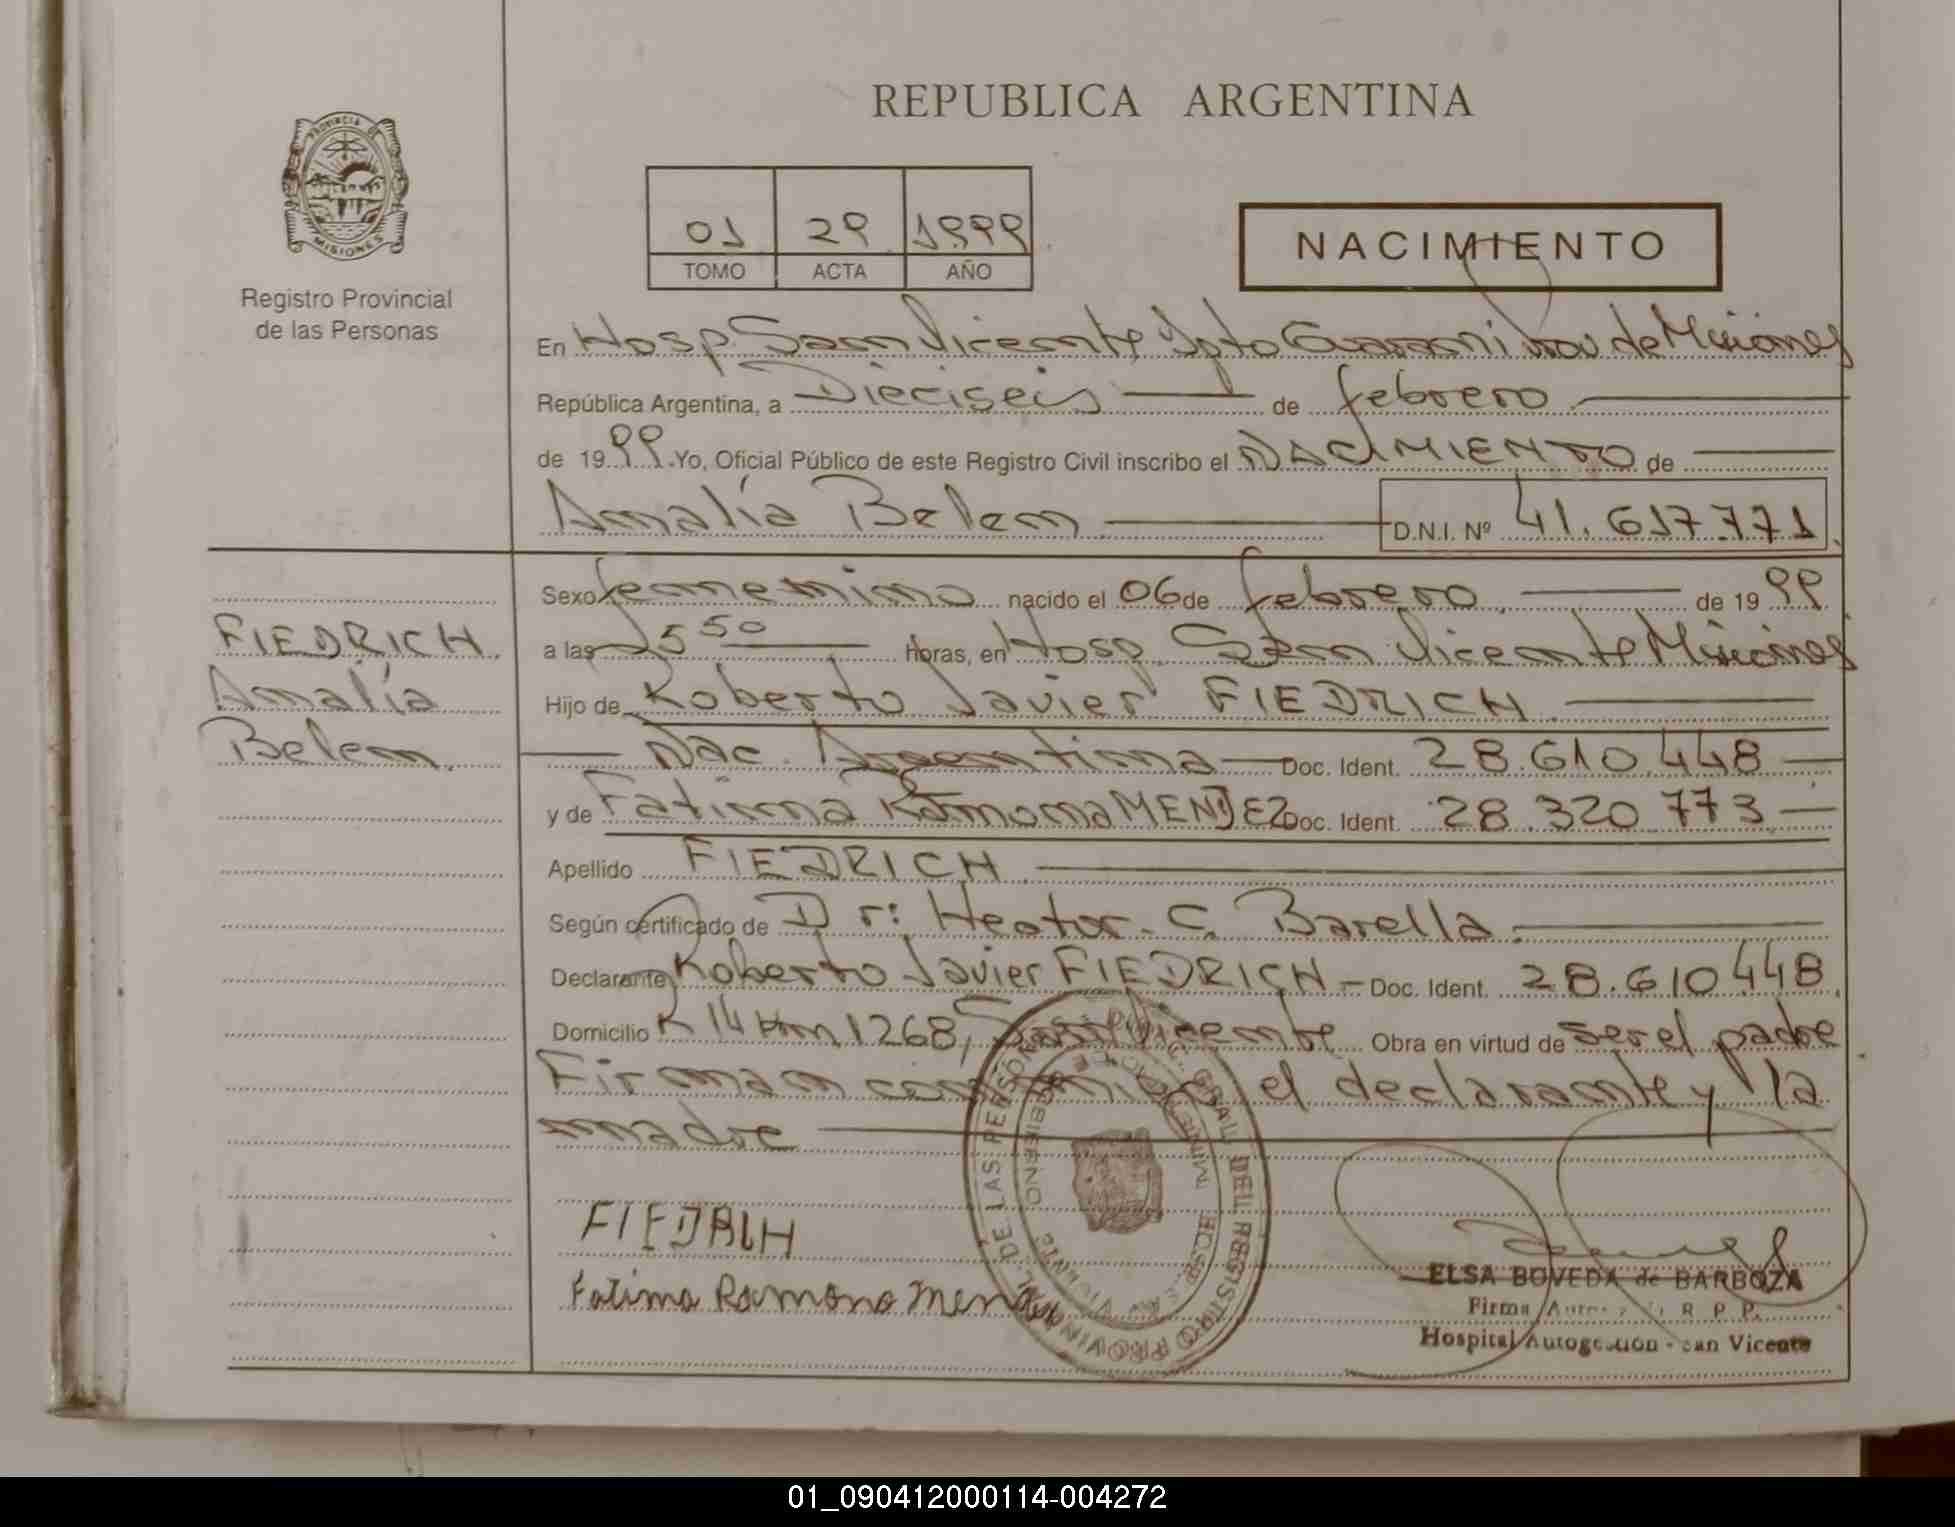 REPUBLICA ARGENTINA
PROVINCIA DE
MISIONES
Registro Provincial
de las Personas
01 29 1999
TOMO ACTA AÑO
NACIMIENTO
En Hosp. San Vicente Dpto Guaraní Prov de Misiones
República Argentina, a Dieciseis de febrero
de 1999. Yo, Oficial Público de este Registro Civil inscribo el NACIMIENTO de
Amalía Belem D.N.I. Nº 41.617.771
FIEDRICH
Amalía
Belem.
Sexo femenino nacido el 06 de febrero. de 1999
a las 550 Horas, en Hosp. San Vicente Misiones
Hijo de Roberto Javier FIEDRICH
Nac. Argentina Doc. Ident. 28.610.448
y de Fatima Ramona MENDEZ Doc. Ident. 28.320.773
Apellido FIEDRICH
Según certificado de Dr: Hector. C. Barella
Declarante Roberto Javier FIEDRICH Doc. Ident. 28.610.448
Domicilio K 14 Km 1268, San Vicente Obra en virtud de ser el padre
Firman conmigo el declarante y la
madre
FIEDRIH
Fatima Ramona Mendez
ELSA BOVEDA de BARBOZA
Firma R. P. P.
Hospital Autogestión - San Vicente
DE LAS PERSONAS DEL REGISTRO PROVINCIAL
01_090412000114-004272